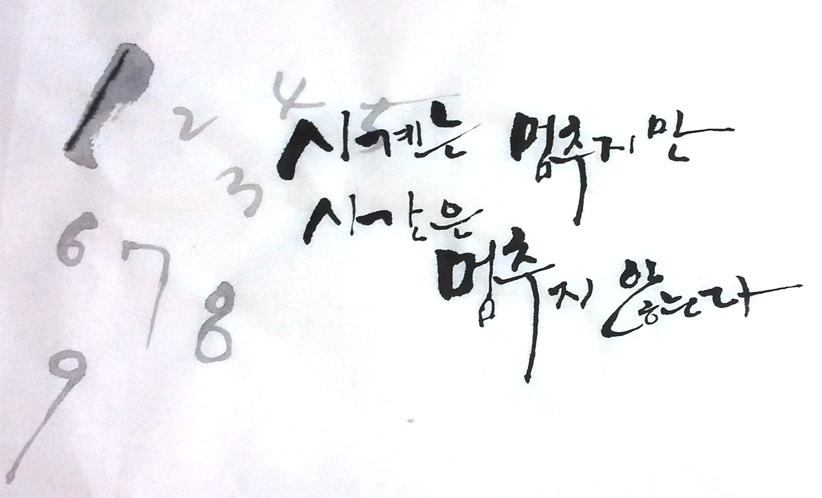 1 2 3 4 5
6 7 8
9
시계는 멈추지만
시간은
멈추지 않는다